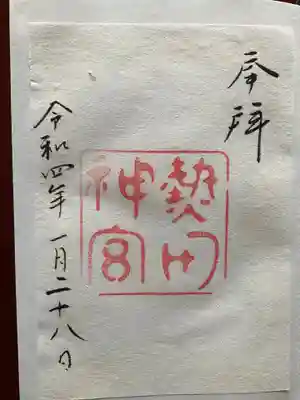 奉拝
熱田
神宮
令和四年一月二十八日